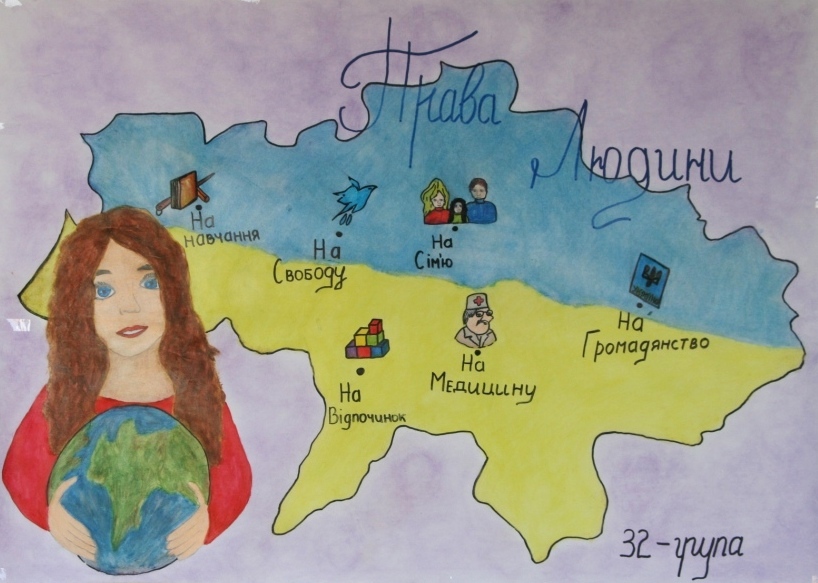 Права
Людини
На
навчання
На
Свободу
На
Сім'ю
На
Громадянство
На
Медицину
На
Відпочинок
32-група